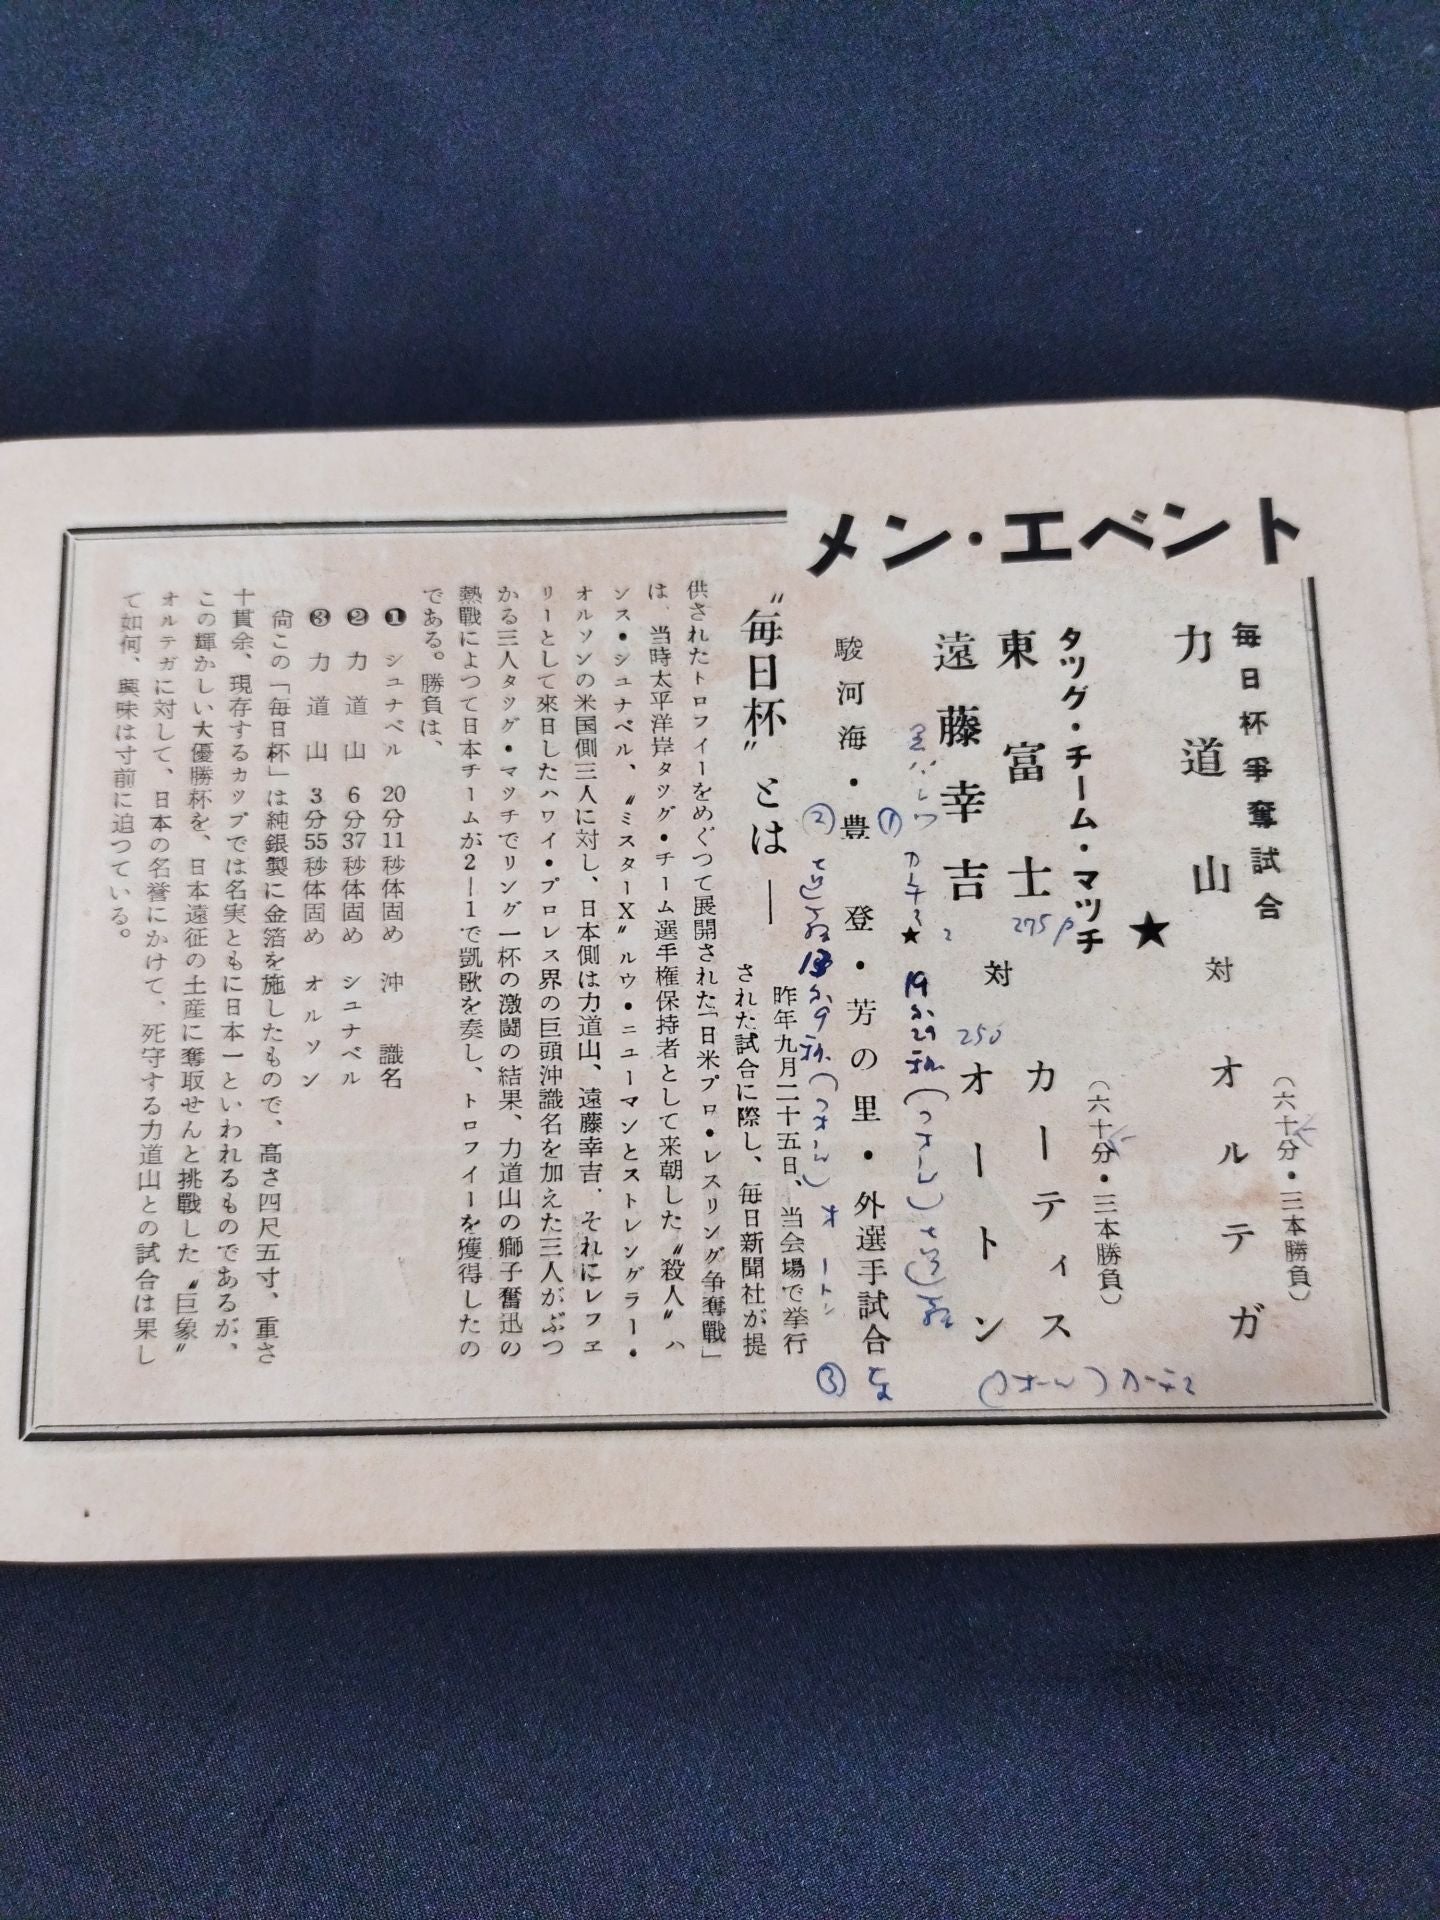 メン・エベント
毎日杯爭奪試合
(六十分・三本勝負)
力道山 対 オルテガ
★
タッグ・チーム・マッチ
(六十分・三本勝負)
東富士
遠藤幸吉
対
カーティス
オートン
275p
250
★
駿河海・豊登・芳の里・外選手試合
① カーチス 19分29秒(フォール)遠藤
② 遠藤 13分9秒(フォール)オートン
③ 東 (フォール)カーチス
〝毎日杯〟とは――
昨年九月二十五日、当会場で挙行
された試合に際し、毎日新聞社が提
供されたトロフイーをめぐつて展開された「日米プロ・レスリング争奪戰」
は、当時太平洋岸タッグ・チーム選手権保持者として来朝した〝殺人〟ハ
ンス・シュナベル、〝ミスターX〟ルウ・ニューマンとストレングラー・
オルソンの米国側三人に対し、日本側は力道山、遠藤幸吉、それにレフェ
リーとして來日したハワイ・プロレス界の巨頭沖識名を加えた三人がぶつ
かる三人タッグ・マッチでリング一杯の激闘の結果、力道山の獅子奮迅の
熱戰によつて日本チームが2―1で凱歌を奏し、トロフイーを獲得したの
である。勝負は、
❶ シュナベル 20分11秒体固め 沖識名
❷ 力道山 6分37秒体固め シュナベル
❸ 力道山 3分55秒体固め オルソン
尙この「毎日杯」は純銀製に金箔を施したもので、高さ四尺五寸、重さ
十貫余、現存するカップでは名実ともに日本一といわれるものであるが、
この輝かしい大優勝杯を、日本遠征の土産に奪取せんと挑戰した〝巨象〟
オルテガに対して、日本の名誉にかけて、死守する力道山との試合は果し
て如何、興味は寸前に迫つている。